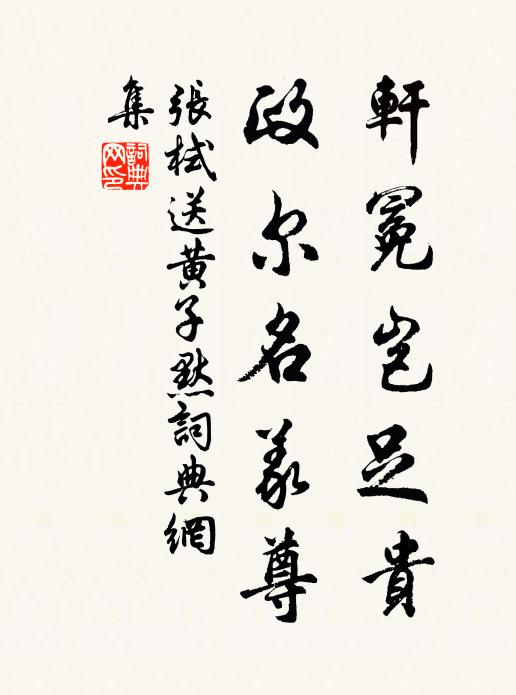 軒冕豈足貴
政尔名義尊
張栻送黄子默詞典網
集
詞典
网印